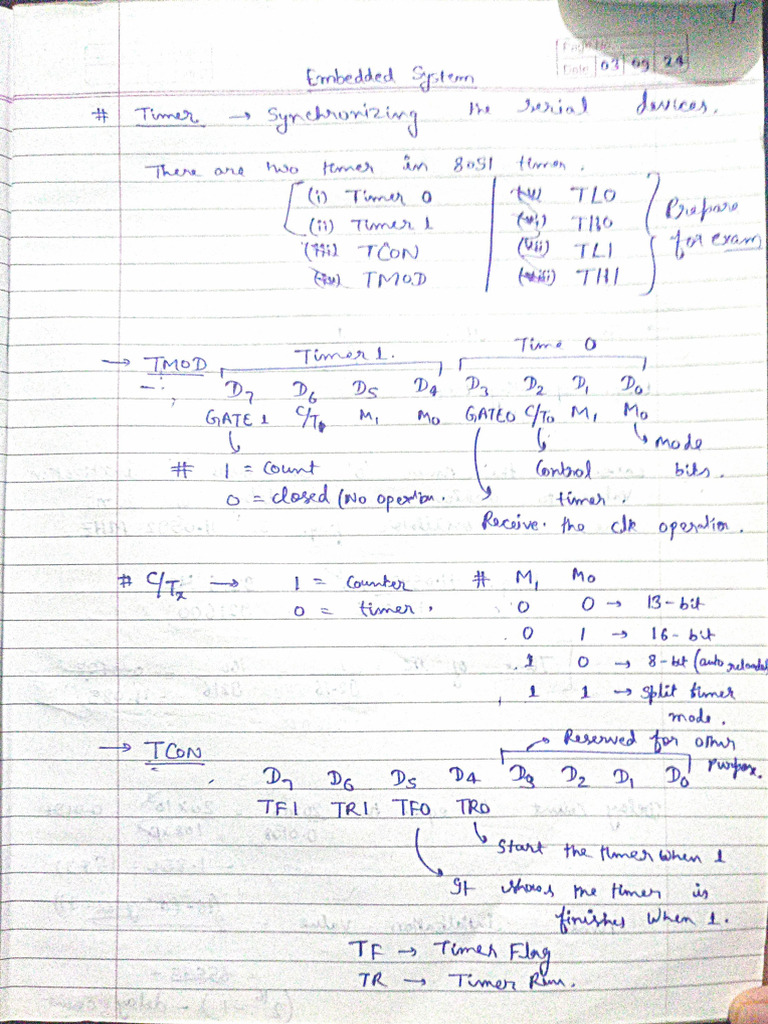 1
Page No.
Date 03 09 24
Embedded System
# Timer → Synchronizing the serial devices.
There are two timer in 8051 timer.
(i) Timer 0 (v) TL0
(ii) Timer 1 (vi) TH0 Prepare
(iii) TCON (vii) TL1 for exam
(iv) TMOD (viii) TH1
→ TMOD Timer 1. Time 0
D7 D6 D5 D4 D3 D2 D1 D0
GATE 1 C/T1 M1 M0 GATE0 C/T0 M1 M0
→ mode
# 1 = Count Control bits.
0 = closed (No operation. timer.
Receive. the clk operation.
# C/Tx → 1 = Counter # M1 M0
0 = timer. 0 0 → 13-bit
0 1 → 16-bit
1 0 → 8-bit (auto reloaded)
1 1 → split timer
mode.
→ TCON → Reserved for other
purpose.
D7 D6 D5 D4 D3 D2 D1 D0
TF1 TR1 TF0 TR0
Start the timer when 1
It shows the timer is
finishes when 1.
TF → Timer Flag
TR → Timer Run.